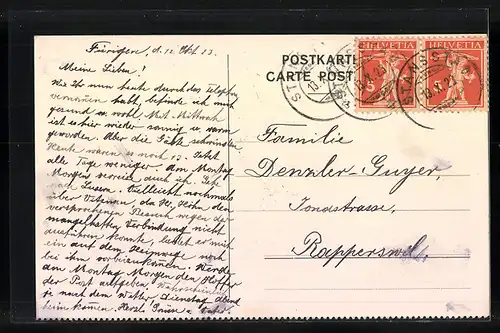 Fürigen, d. 12. Okt. 23.
Meine Lieben!
Wie Ihr nun heute durch das Telephon
vernommen habt, befinde ich mich
gesund u. wohl. Mit Mittwoch
ist es hier wieder sonnig u. warm
geworden. Aber die Gäste schwinden
Heute waren es noch 13. Jetzt
alle Tage weniger. Am Montag
Morgen verreise auch ich.
nach Luzern. Vielleicht nochmals
über
versprochenen Besuch wegen der
mangelhaften Verbindung nicht
ausführen konnte, es mir
ein auf dem Heimweg noch
bei ihm vorbeizukommen. Werde
am Montag Morgen den Koffer
der Post aufgeben. Wahrscheinlich
je nach dem Wetter Dienstag abend
heim kommen. Herzl. Grüsse u.
POSTKARTE
CARTE POSTALE
HELVETIA HELVETIA
STANSSTAD
Familie
Denzler-Guyer,
Tondstrasse,
Rapperswil.